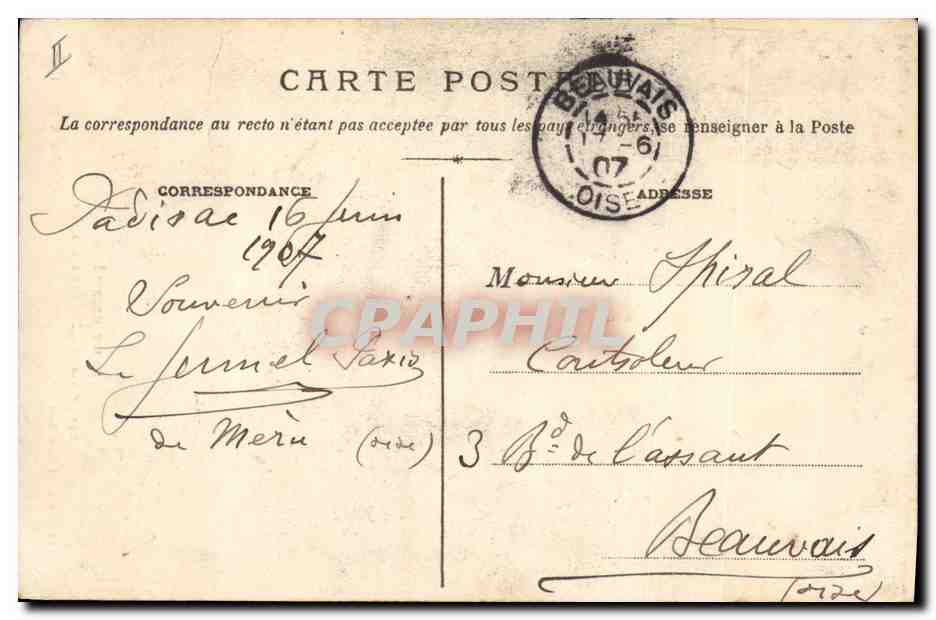 II
CARTE POSTALE
La correspondance au recto n'étant pas acceptée par tous les pays étrangers, se renseigner à la Poste
BEAUVAIS
17 -6
07
OISE
CORRESPONDANCE
Padirac 16 Juin
1907
Souvenir
Le Jumel
de Méru (oise)
ADRESSE
Monsieur Spiral
Controleur
3 Bd de l'assaut
Beauvais
(oise)
CPARPHIL